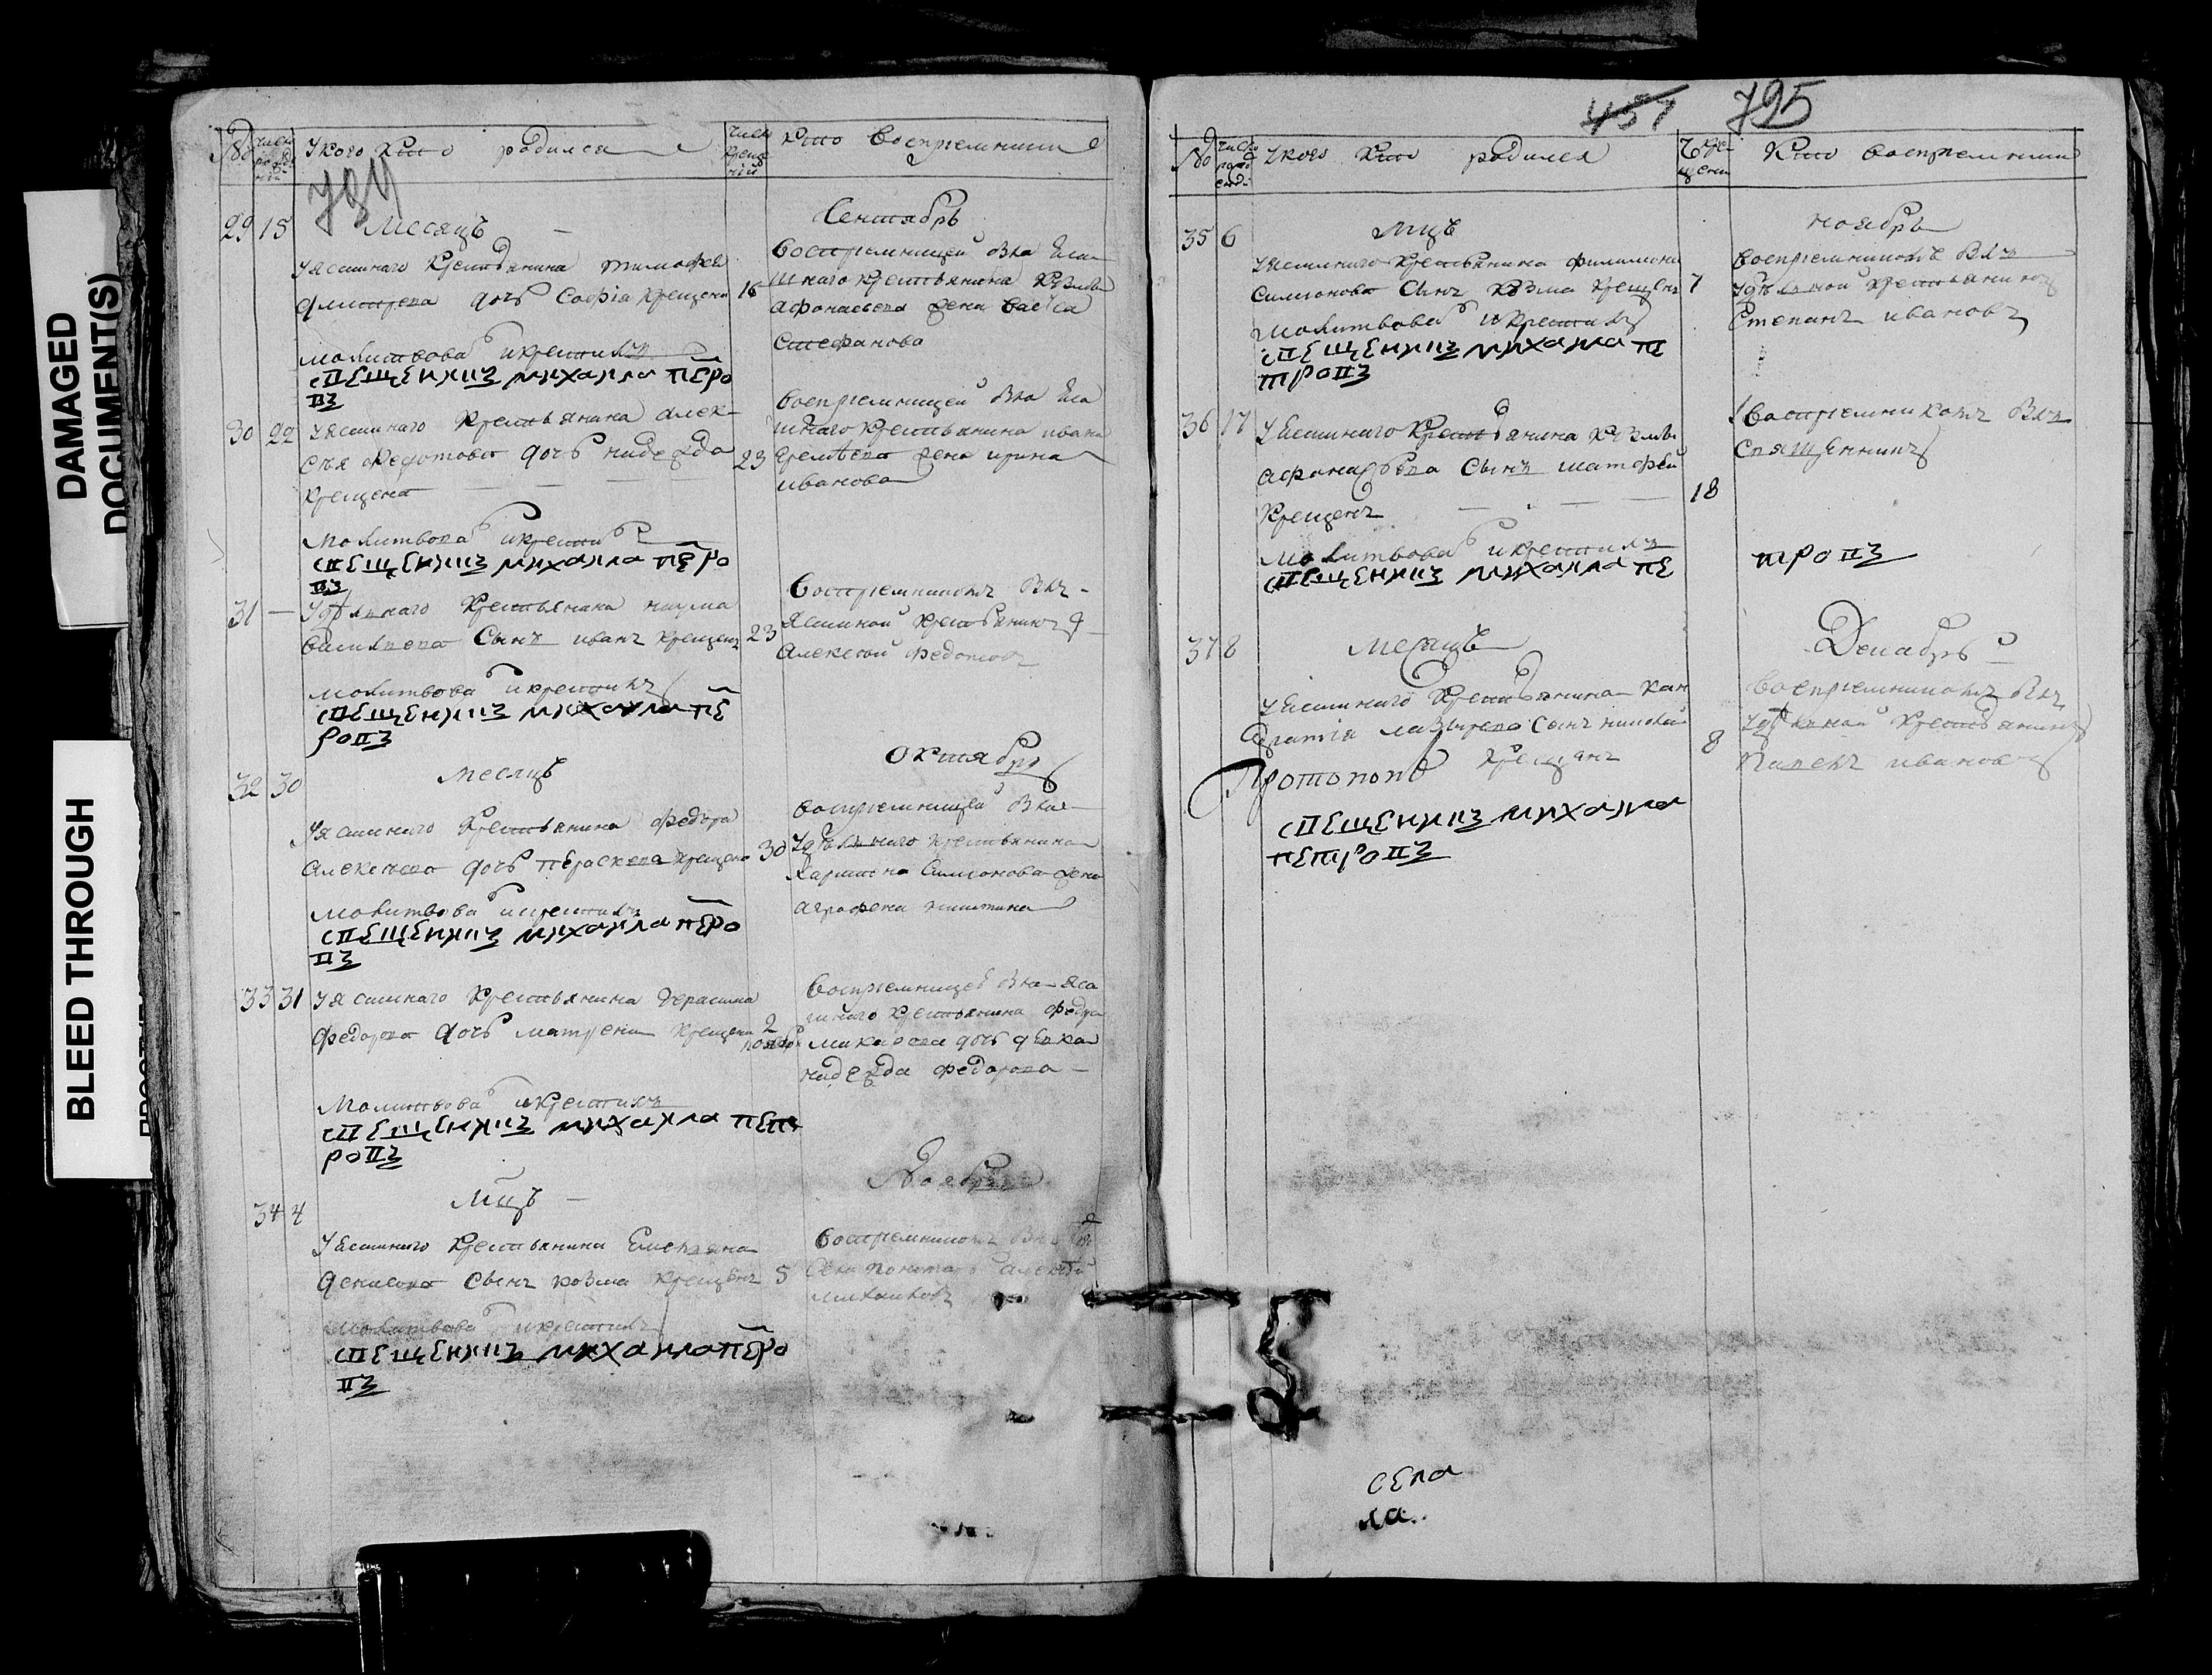 DAMAGED
DOCUMENT(S)
BLEED THROUGH
№ Число рождений У кого кто родился Число крещений кто восприемники
794
29 15 Месяцъ Сентябрь
У ясашнаго крестьянина тимофея
дмитрева дочь Софіа крещена 16
молитвовалъ и крестилъ
свещенникъ михаила петро
въ
восприемницей была яса
шнаго крестьянина кузмы
афонасьева жена
стефанова
30 22 У ясашнаго крестьянина алек
сея федотова дочь надежда 23
крещена
молитвовалъ и крестилъ
свещенникъ михаила петро
въ
восприемницей была яса
шнаго крестьянина ивана
еремѣева жена ирина
иванова
31 — Удѣльнаго крестьянина наума
васильева Сынъ иванъ крещенъ 23
молитвовалъ и крестилъ
свещенникъ михаила пет
ровъ
восприемникомъ былъ
ясашной крестьянинъ
алексей федотовъ
32 30 месяцъ октябрь
У ясашнаго крестьянина федора
алексеева дочь параскева крещена 30
молитвовалъ и крестилъ
свещенникъ михаила петро
въ
восприемницей была
Удѣльнаго крестьянина
харитона Симеонова жена
аграфена никитина
33 31 У ясашнаго крестьянина герасима
федорова дочь матрена крещена 2
ноября
Молитвовалъ и крестилъ
свещенникъ михаила пет
ровъ
восприемницей была яса
шнаго крестьянина федора
макарова дочь девка
надежда федорова
34 4 Мцъ Ноябрь
У ясашнаго крестьянина Емельяна
денисова Сынъ козма крещенъ 5
молитвовалъ и крестилъ
свещенникъ михаила петро
въ
восприемникомъ былъ
села понамарь алексей
михаиловъ
457 795
№ Число рождений У кого кто родился Ч крещений Кто восприемники
35 6 мцъ ноябрь
У ясашнаго крестьянина филимона
Симеонова Сынъ козма крещенъ 7
молитвовалъ и крестилъ
свещенникъ михаила пе
тровъ
восприемникомъ былъ
удѣльной крестьянинъ
Степанъ ивановъ
36 17 У ясашнаго крестьянина кузмы
афонасьева Сынъ матфей
крещенъ 18
молитвовалъ и крестилъ
свещенникъ михаила пе
тровъ
восприемникомъ былъ
Священникъ
37 8 месяцъ Декабрь
У ясашнаго крестьянина кон
дратія лазырева Сынъ николай
крещенъ 8
Протопопъ
свещенникъ михаила
петровъ
восприемникомъ былъ
удѣльной крестьянинъ
Павелъ ивановъ
села
ла